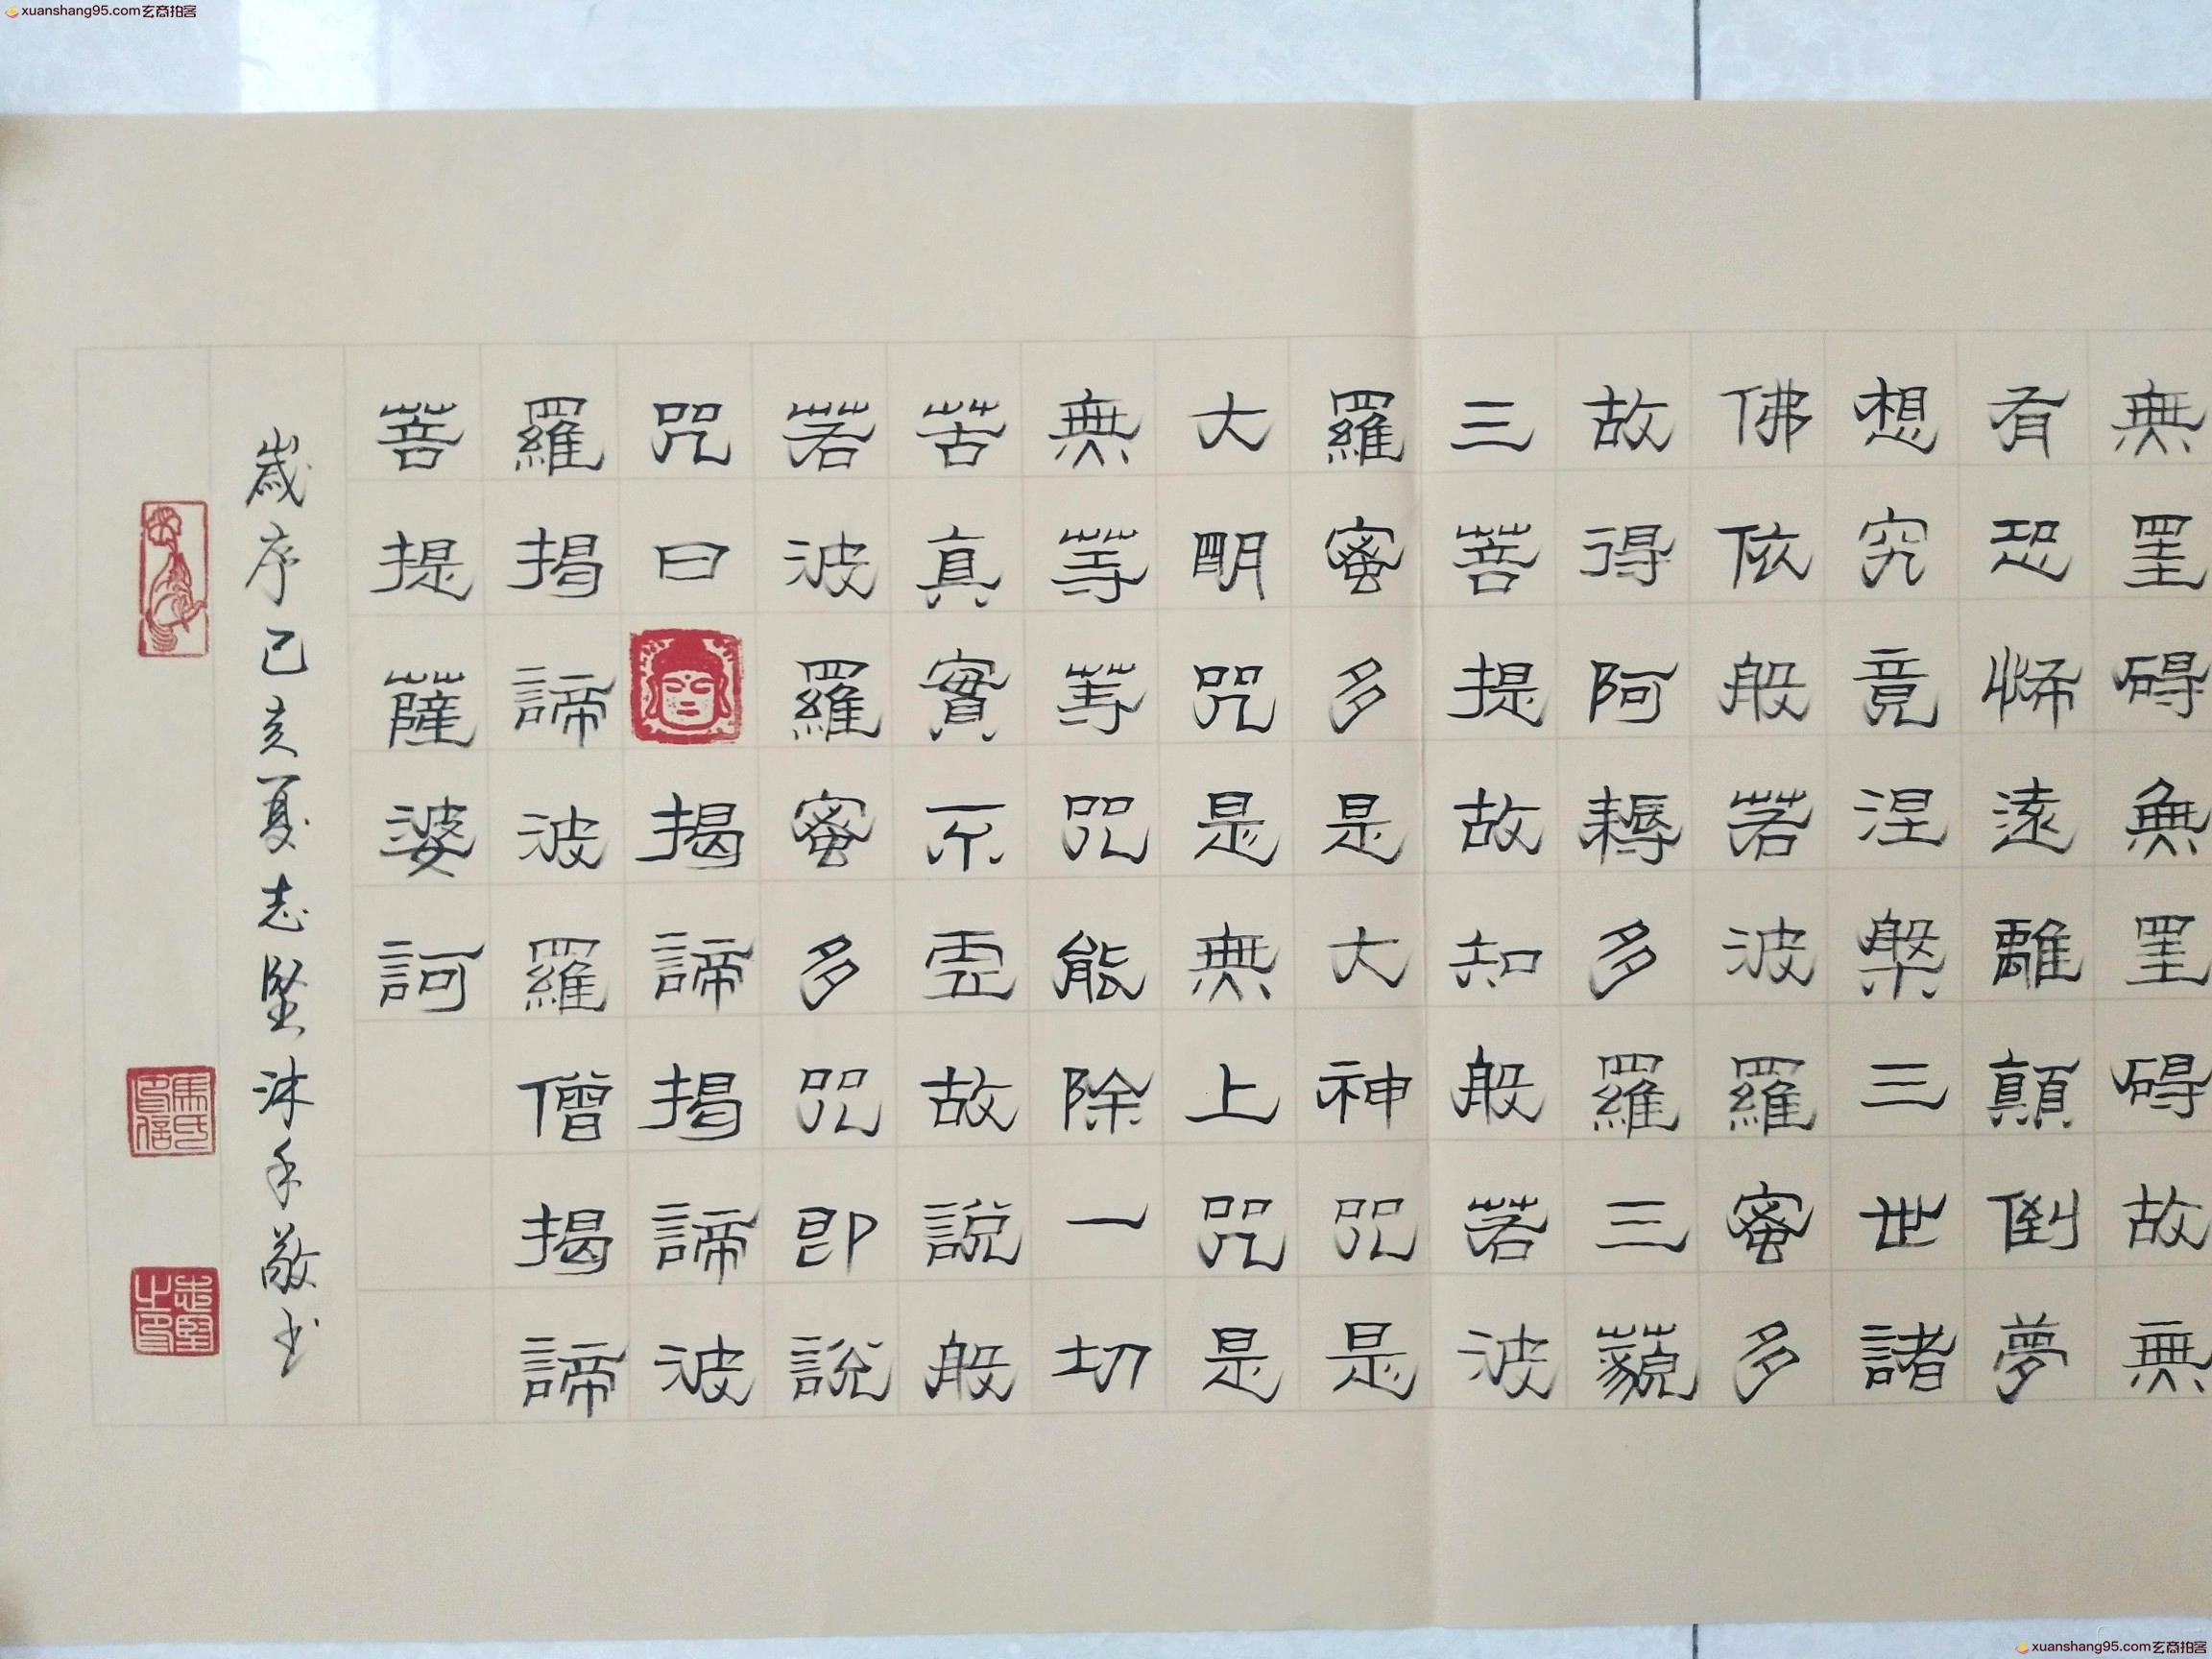 xuanshang95.com玄商拍客
無罣碍無罣碍故無
有恐怖遠離顛倒夢
想究竟涅槃三世諸
佛依般若波羅蜜多
故得阿耨多羅三藐
三菩提故知般若波
羅蜜多是大神咒是
大明咒是無上咒是
無等等咒能除一切
苦真實不虛故說般
若波羅蜜多咒即說
咒曰揭諦揭諦波
羅揭諦波羅僧揭諦
菩提薩婆訶
歲序己亥夏志堅沐手敬书
馬氏印信
志堅之印
xuanshang95.com玄商拍客